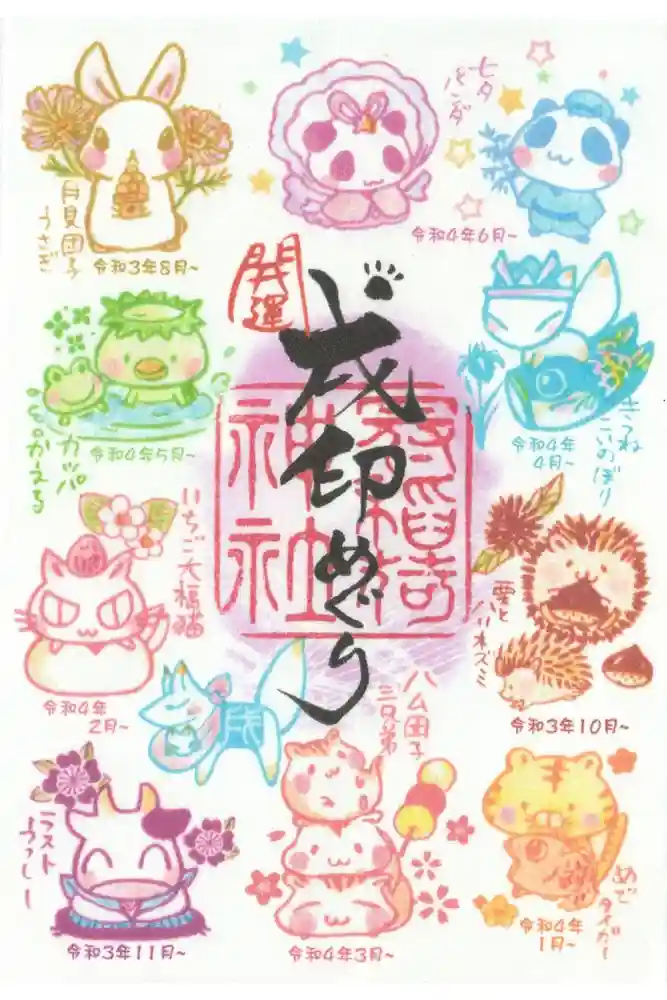 月見団子
うさぎ
令和3年8月~
七夕
パンダ
令和4年6月~
開運
戌印めぐり
神社
カッパ
とかえる
令和4年5月~
きつね
こいのぼり
令和4年
4月~
いちご大福猫
令和4年
2月~
栗と
ハリネズミ
令和3年10月~
戌
ハム団子
三兄弟
令和4年3月~
ラスト
うっしー
令和3年11月~
めで
タイガー
令和4年
1月~